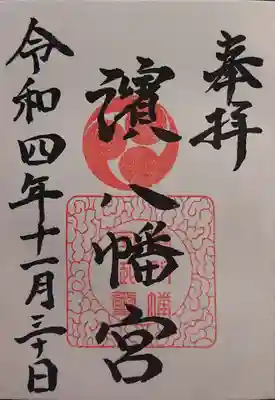 奉拝
濱八幡宮
令和四年十一月三十日